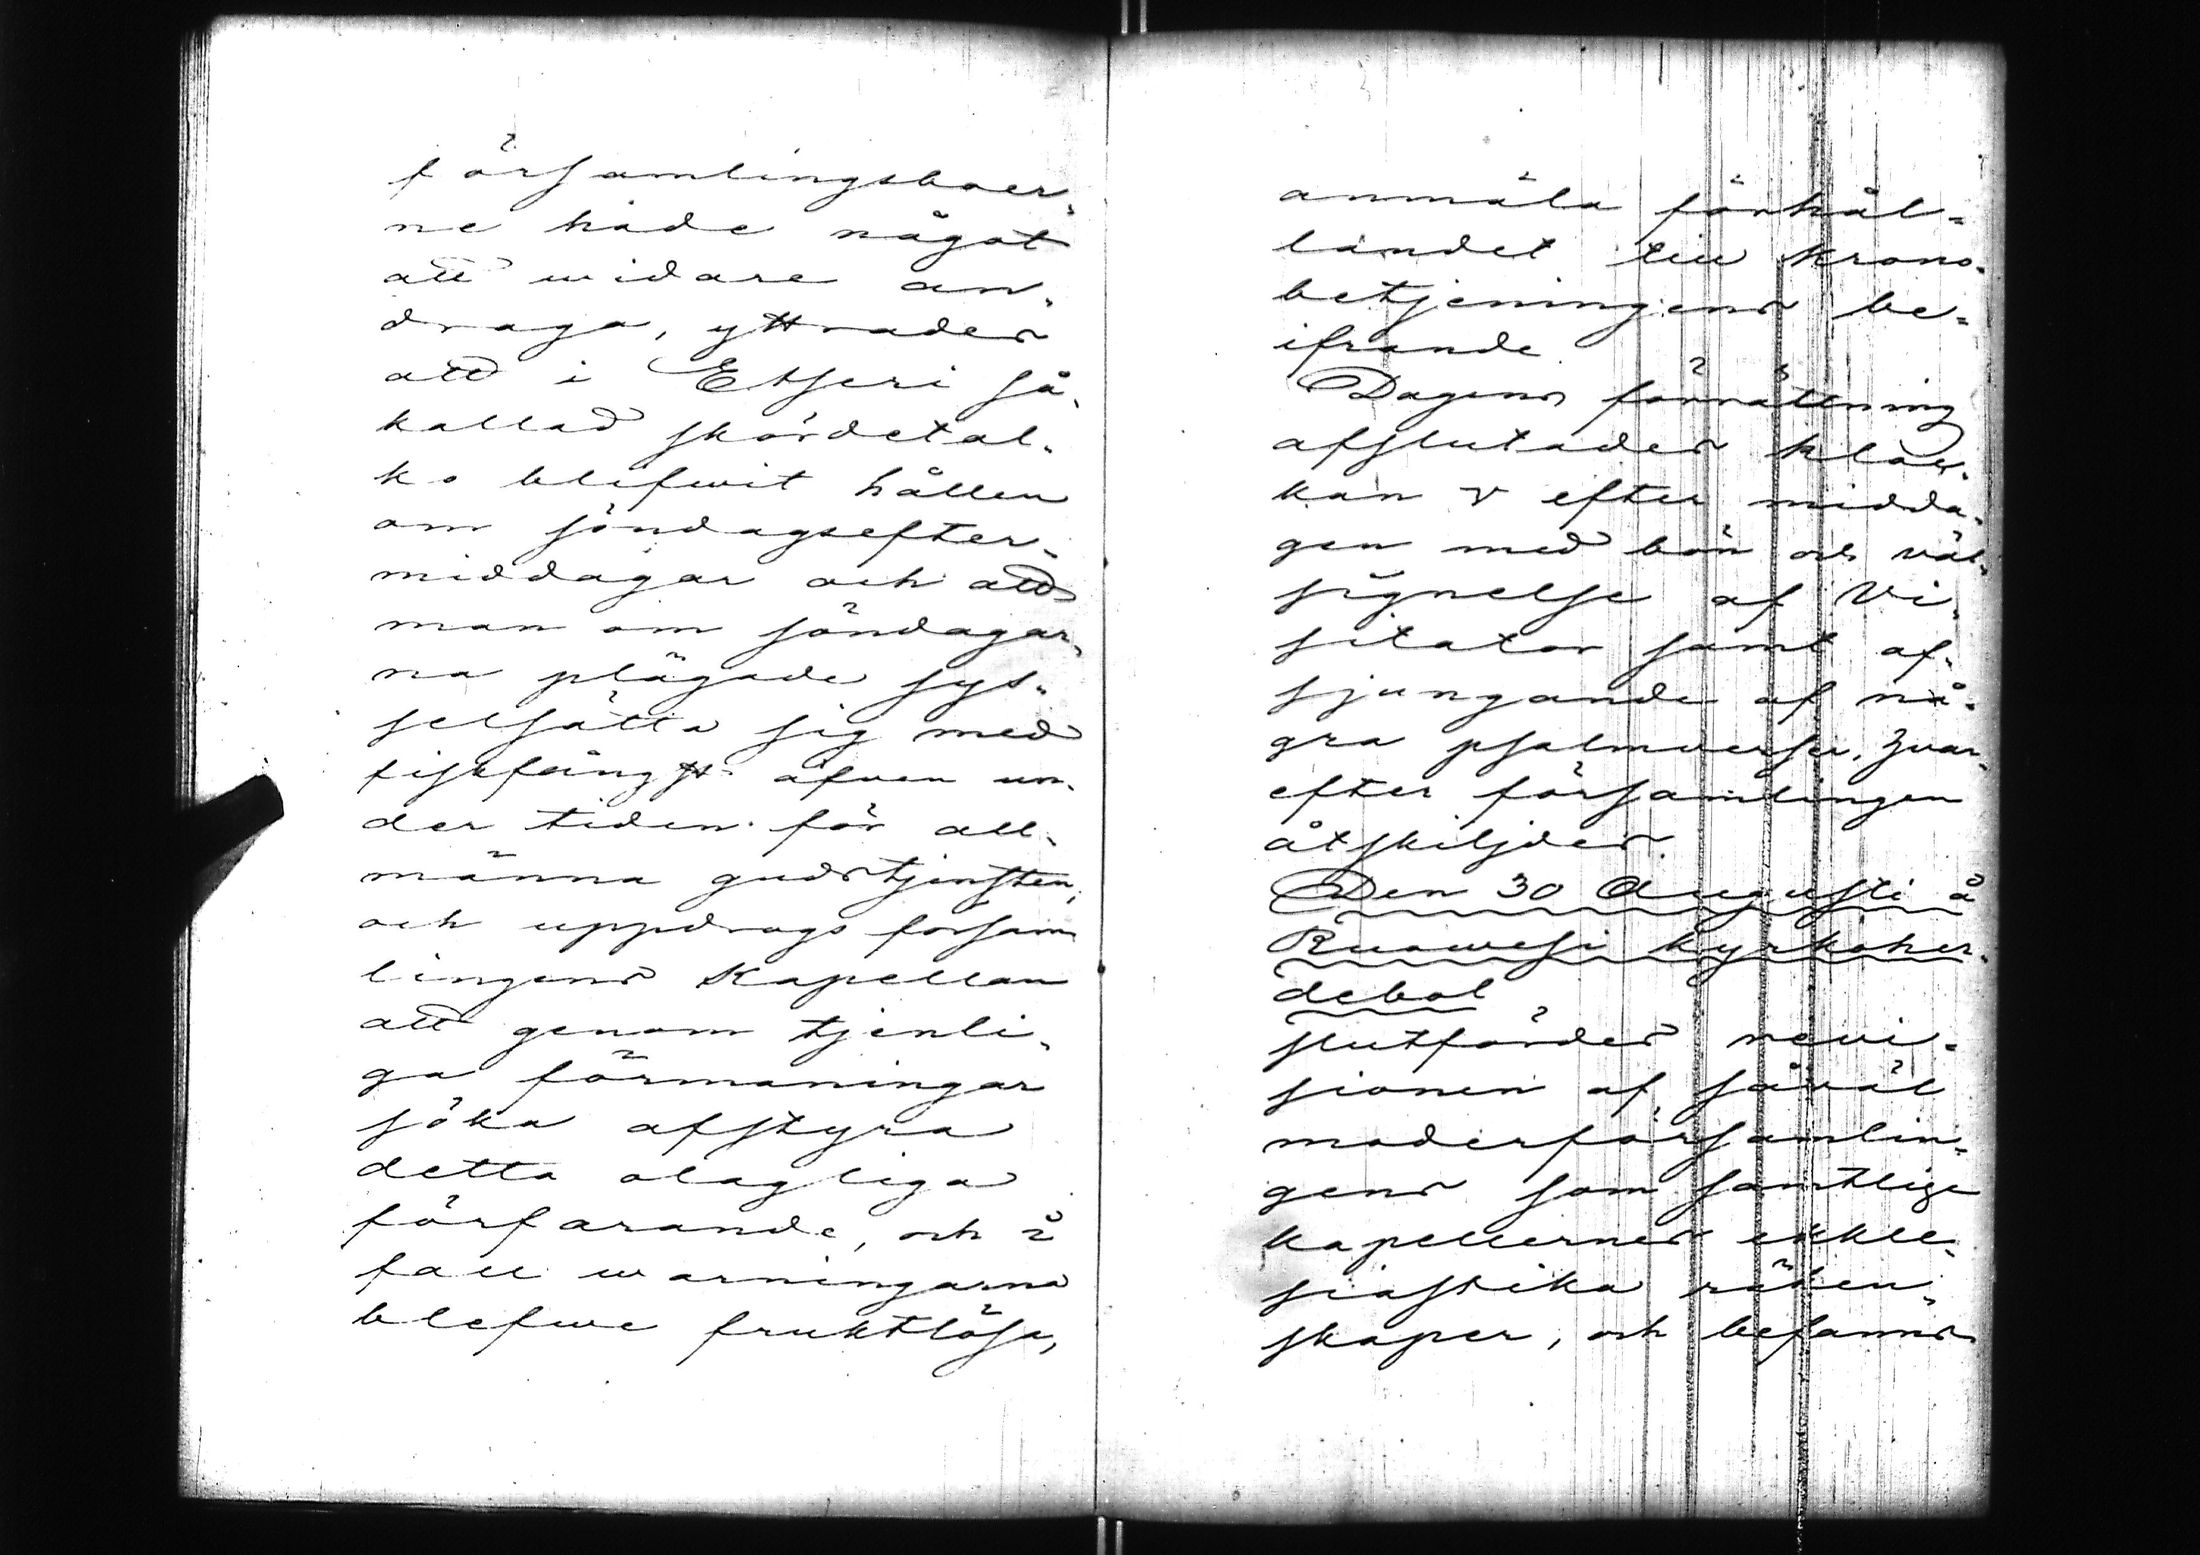 församlingsboer-
ne hade något
att widare an-
draga, yttrades
att i Etseri så
kallad skördetal-
ko blifwit hållen
om söndagsefter-
middagar och att
man om söndagar-
na plägade sys-
selsätta sig med
fiskfångst äfven un-
der tiden för all-
männa gudstjensten,
och uppdrogs försam
lingens Kapellan
att genom tjenli-
ga förmaningar
söka afstyra
detta olagliga
förfarande, och i
fall warningarna
blefwe fruktlösa,
anmäla förhål-
landet till krono-
betjeningens be-
ifrande.
Dagens förrättning
afslutades kloc-
kan v efter midda-
gen med bön och väl-
signelse af Vi-
sitator samt af-
sjungande af nå-
gra psalmverser, hvar-
efter församlingen
åtskiljdes.
Den 30 Augusti å
Ruowesi kyrkoher-
debol
slutfördes revi-
sionen af såväl
moderförsamlin-
gens som samtlige
kapellernes ekkle-
siastika räken-
skaper, och befanns